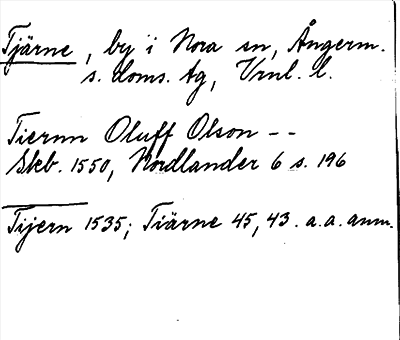 Tjärne, by i Nora sn, Ångerm.
s. doms. tg, Vrnl. l.
Tiernn Oluff Olson --
Skb. 1550, Nordlander 6 s. 196
Tijern 1535; Tiärne 45, 43. a.a. anm.